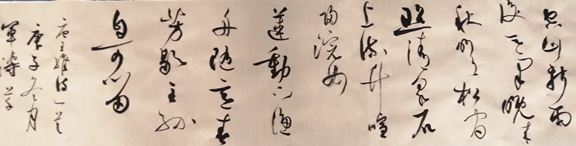 空山新雨
後天氣晚來
秋明月松間
照清泉石
上流竹喧
歸浣女
蓮動下漁
舟隨意春
芳歇王孫
自可留
唐王維詩一首
庚子冬月